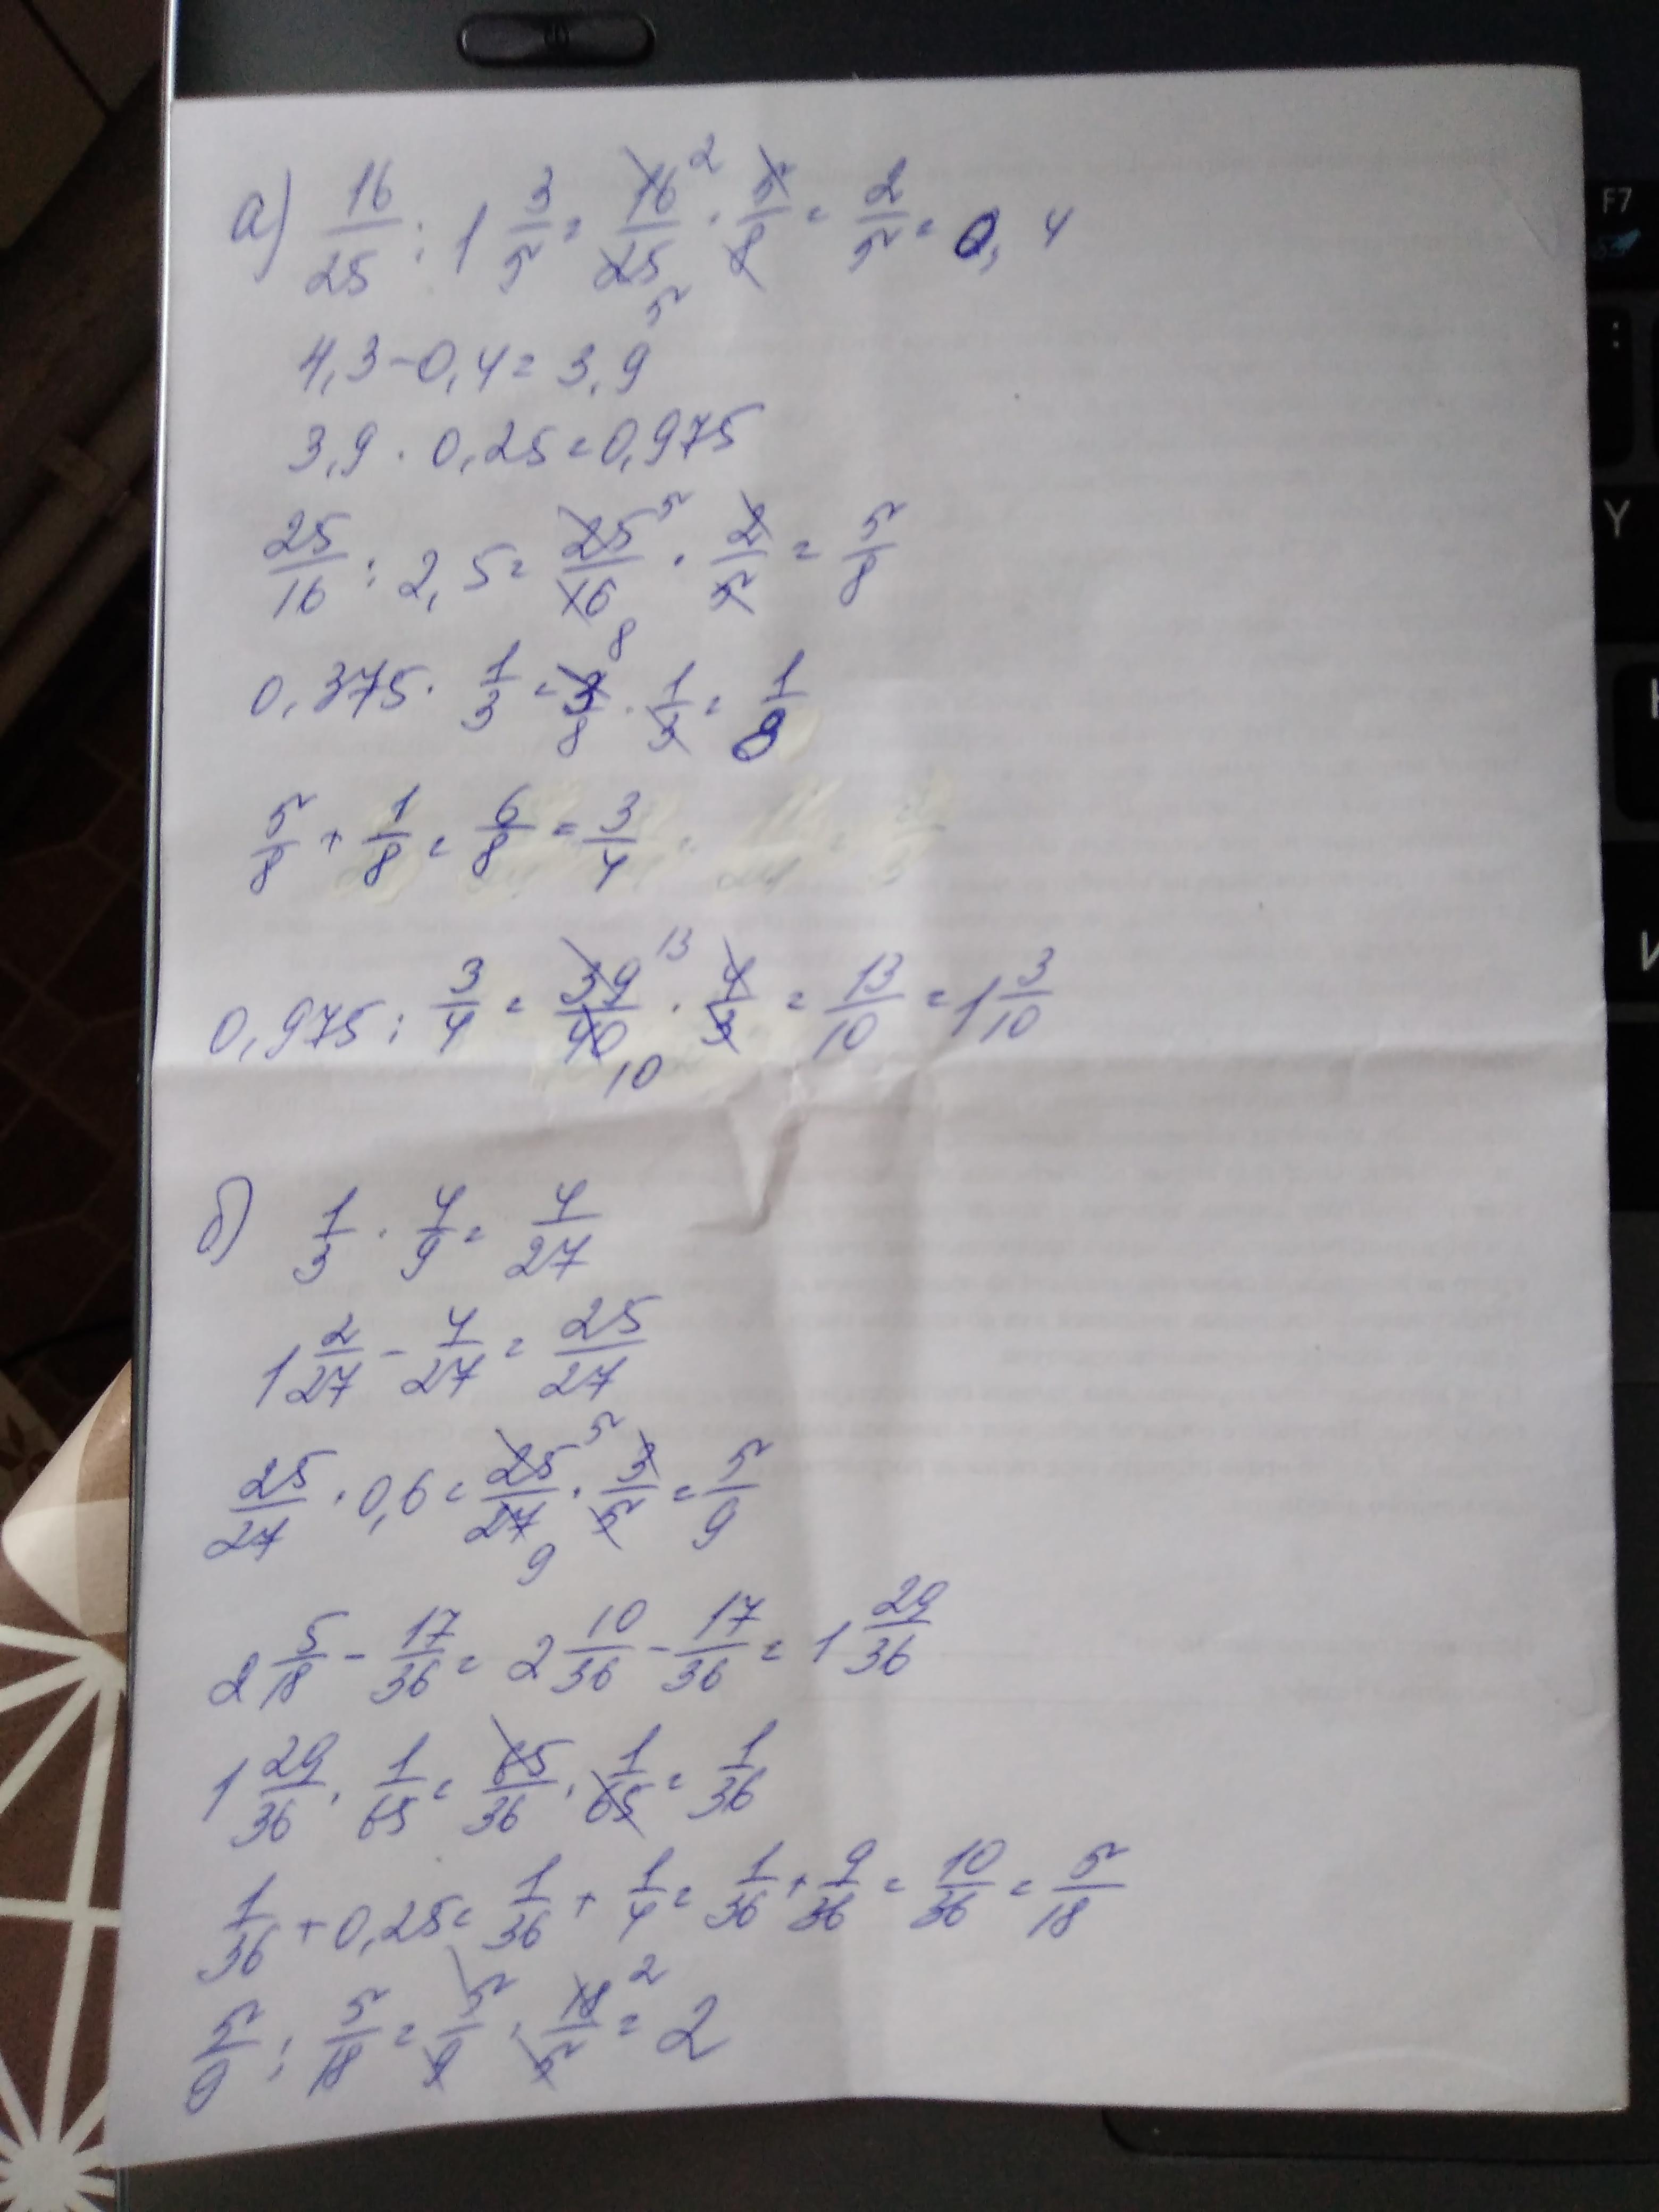 а) 16/25 : 1 3/5 = 16/25 · 5/8 = 2/5 = 0,4
4,3 - 0,4 = 3,9
3,9 · 0,25 = 0,975
25/16 : 2,5 = 25/16 · 2/5 = 5/8
0,375 · 1/3 = 3/8 · 1/3 = 1/8
5/8 + 1/8 = 6/8 = 3/4
0,975 : 3/4 = 39/40 · 4/3 = 13/10 = 1 3/10
б) 1/3 · 4/9 = 4/27
1 2/27 - 4/27 = 25/27
25/27 · 0,6 = 25/27 · 3/5 = 5/9
2 5/18 - 17/36 = 2 10/36 - 17/36 = 1 29/36
1 29/36 · 1/65 = 65/36 · 1/65 = 1/36
1/36 + 0,25 = 1/36 + 1/4 = 1/36 + 9/36 = 10/36 = 5/18
5/9 : 5/18 = 5/9 · 18/5 = 2
F7
Y